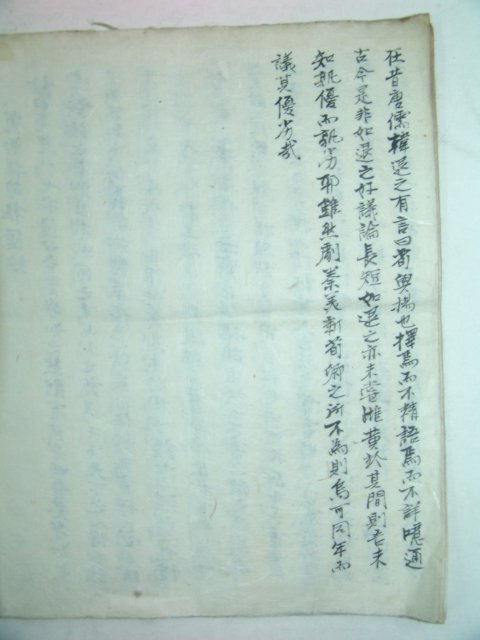 在昔唐儒韓退之有言曰荀與揚也擇焉而不精語焉而不詳噫通
古今是非如退之好議論長短如退之亦未嘗雌黃於其間則吾未
知孰優而孰劣耶雖然劇秦美新荀卿之所不為則烏可同年而
議其優劣哉